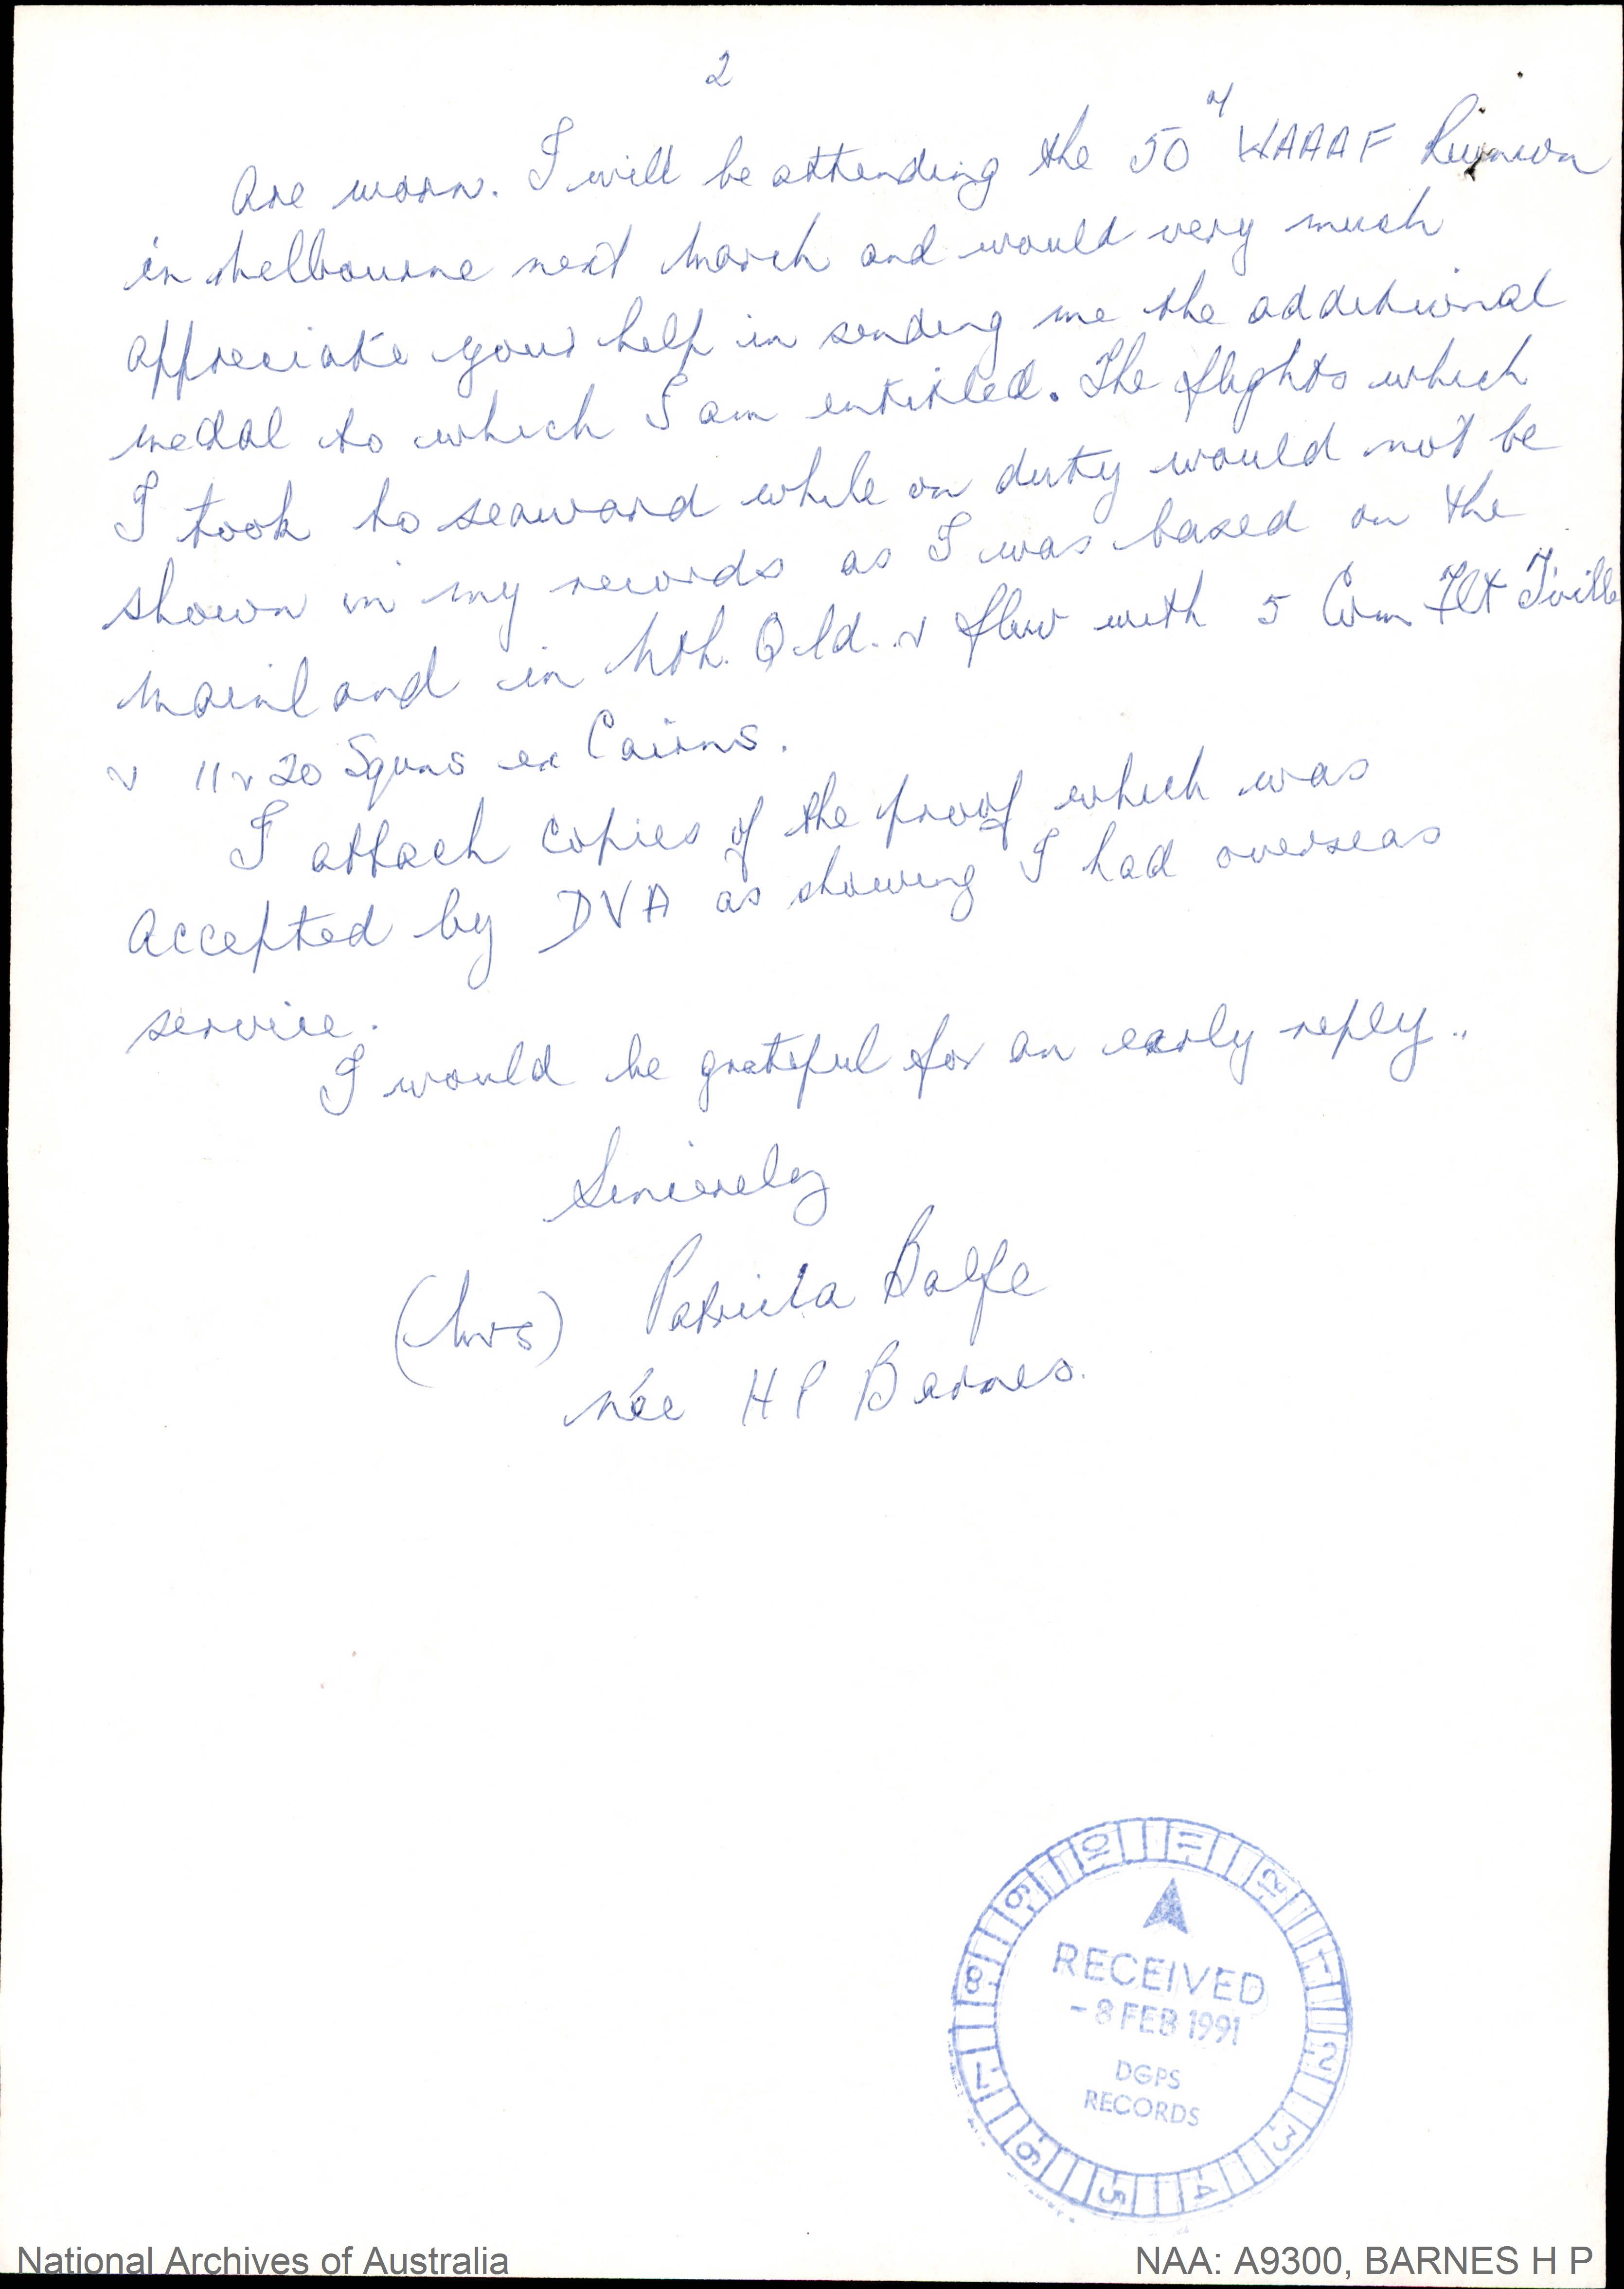 2
are worn. I will be attending the 50th WAAAF Reunion
in Melbourne next March and would very much
appreciate your help in sending me the additional
medal to which I am entitled. The flights which
I took to seaward while on duty would not be
shown in my records as I was based on the
mainland in Nth. Qld. & flew with 5 Com Flt T'ville
& 11 & 20 Sqns ex Cairns.
I attach copies of the proof which was
accepted by DVA as showing I had overseas
service.
I would be grateful for an early reply..
Sincerely
(Mrs) Patricia Balfe
née H P Barnes.
10 11 12 1 2 3 4 5 6 7 8 9
RECEIVED
- 8 FEB 1991
DGPS
RECORDS
National Archives of Australia
NAA: A9300, BARNES H P